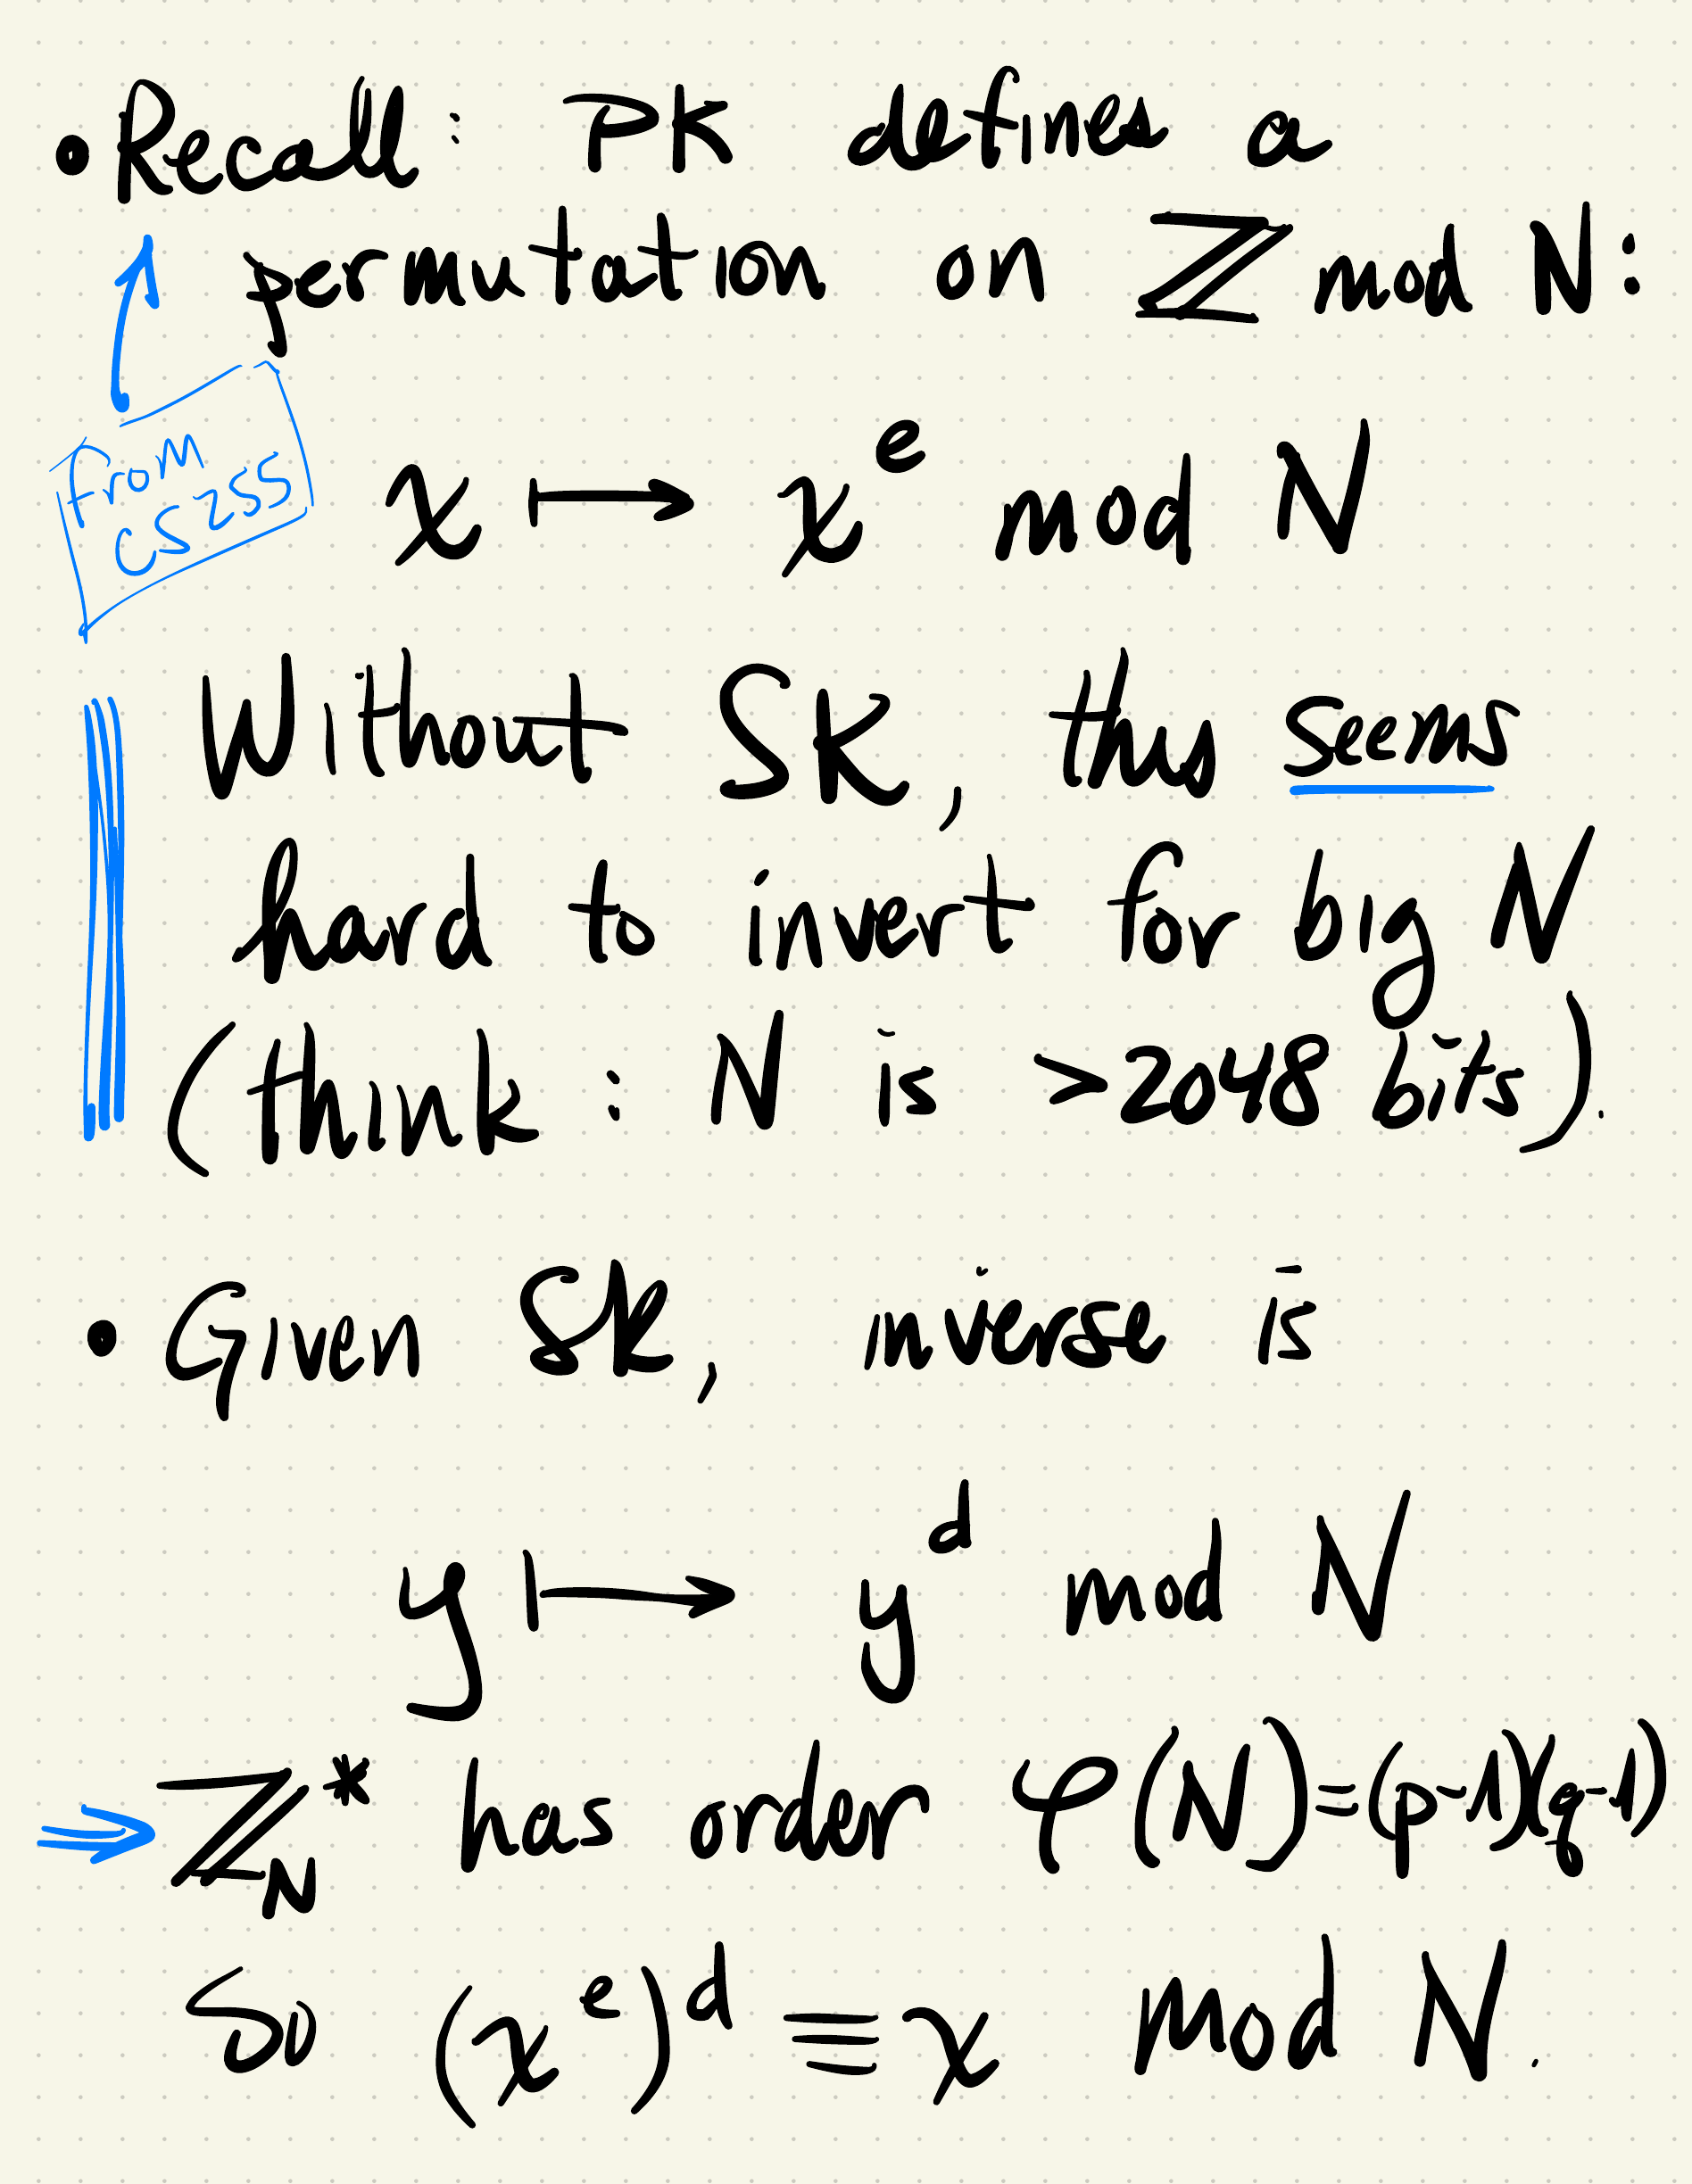 • Recall: PK defines a
permutation on ℤ mod N:
From
CS255
x ↦ x^e mod N
Without SK, this seems
hard to invert for big N
(think: N is >2048 bits).
• Given SK, inverse is
y ↦ y^d mod N
⇒ ℤ_N^* has order φ(N)=(p-1)(q-1)
So (x^e)^d ≡ x mod N.